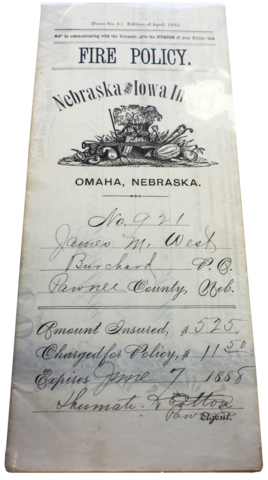 [Form No. 4.] Edition of April, 1883.
In communicating with the Company, give the NUMBER of your Policy.
FIRE POLICY.
Nebraska and Iowa In
OMAHA, NEBRASKA.
No. 921
James M. West
Burchard P.O.
Pawnee County, Neb.
Amount Insured, $ 525
Charged for Policy, $ 11 50
Expires June 7 1888
Agent.